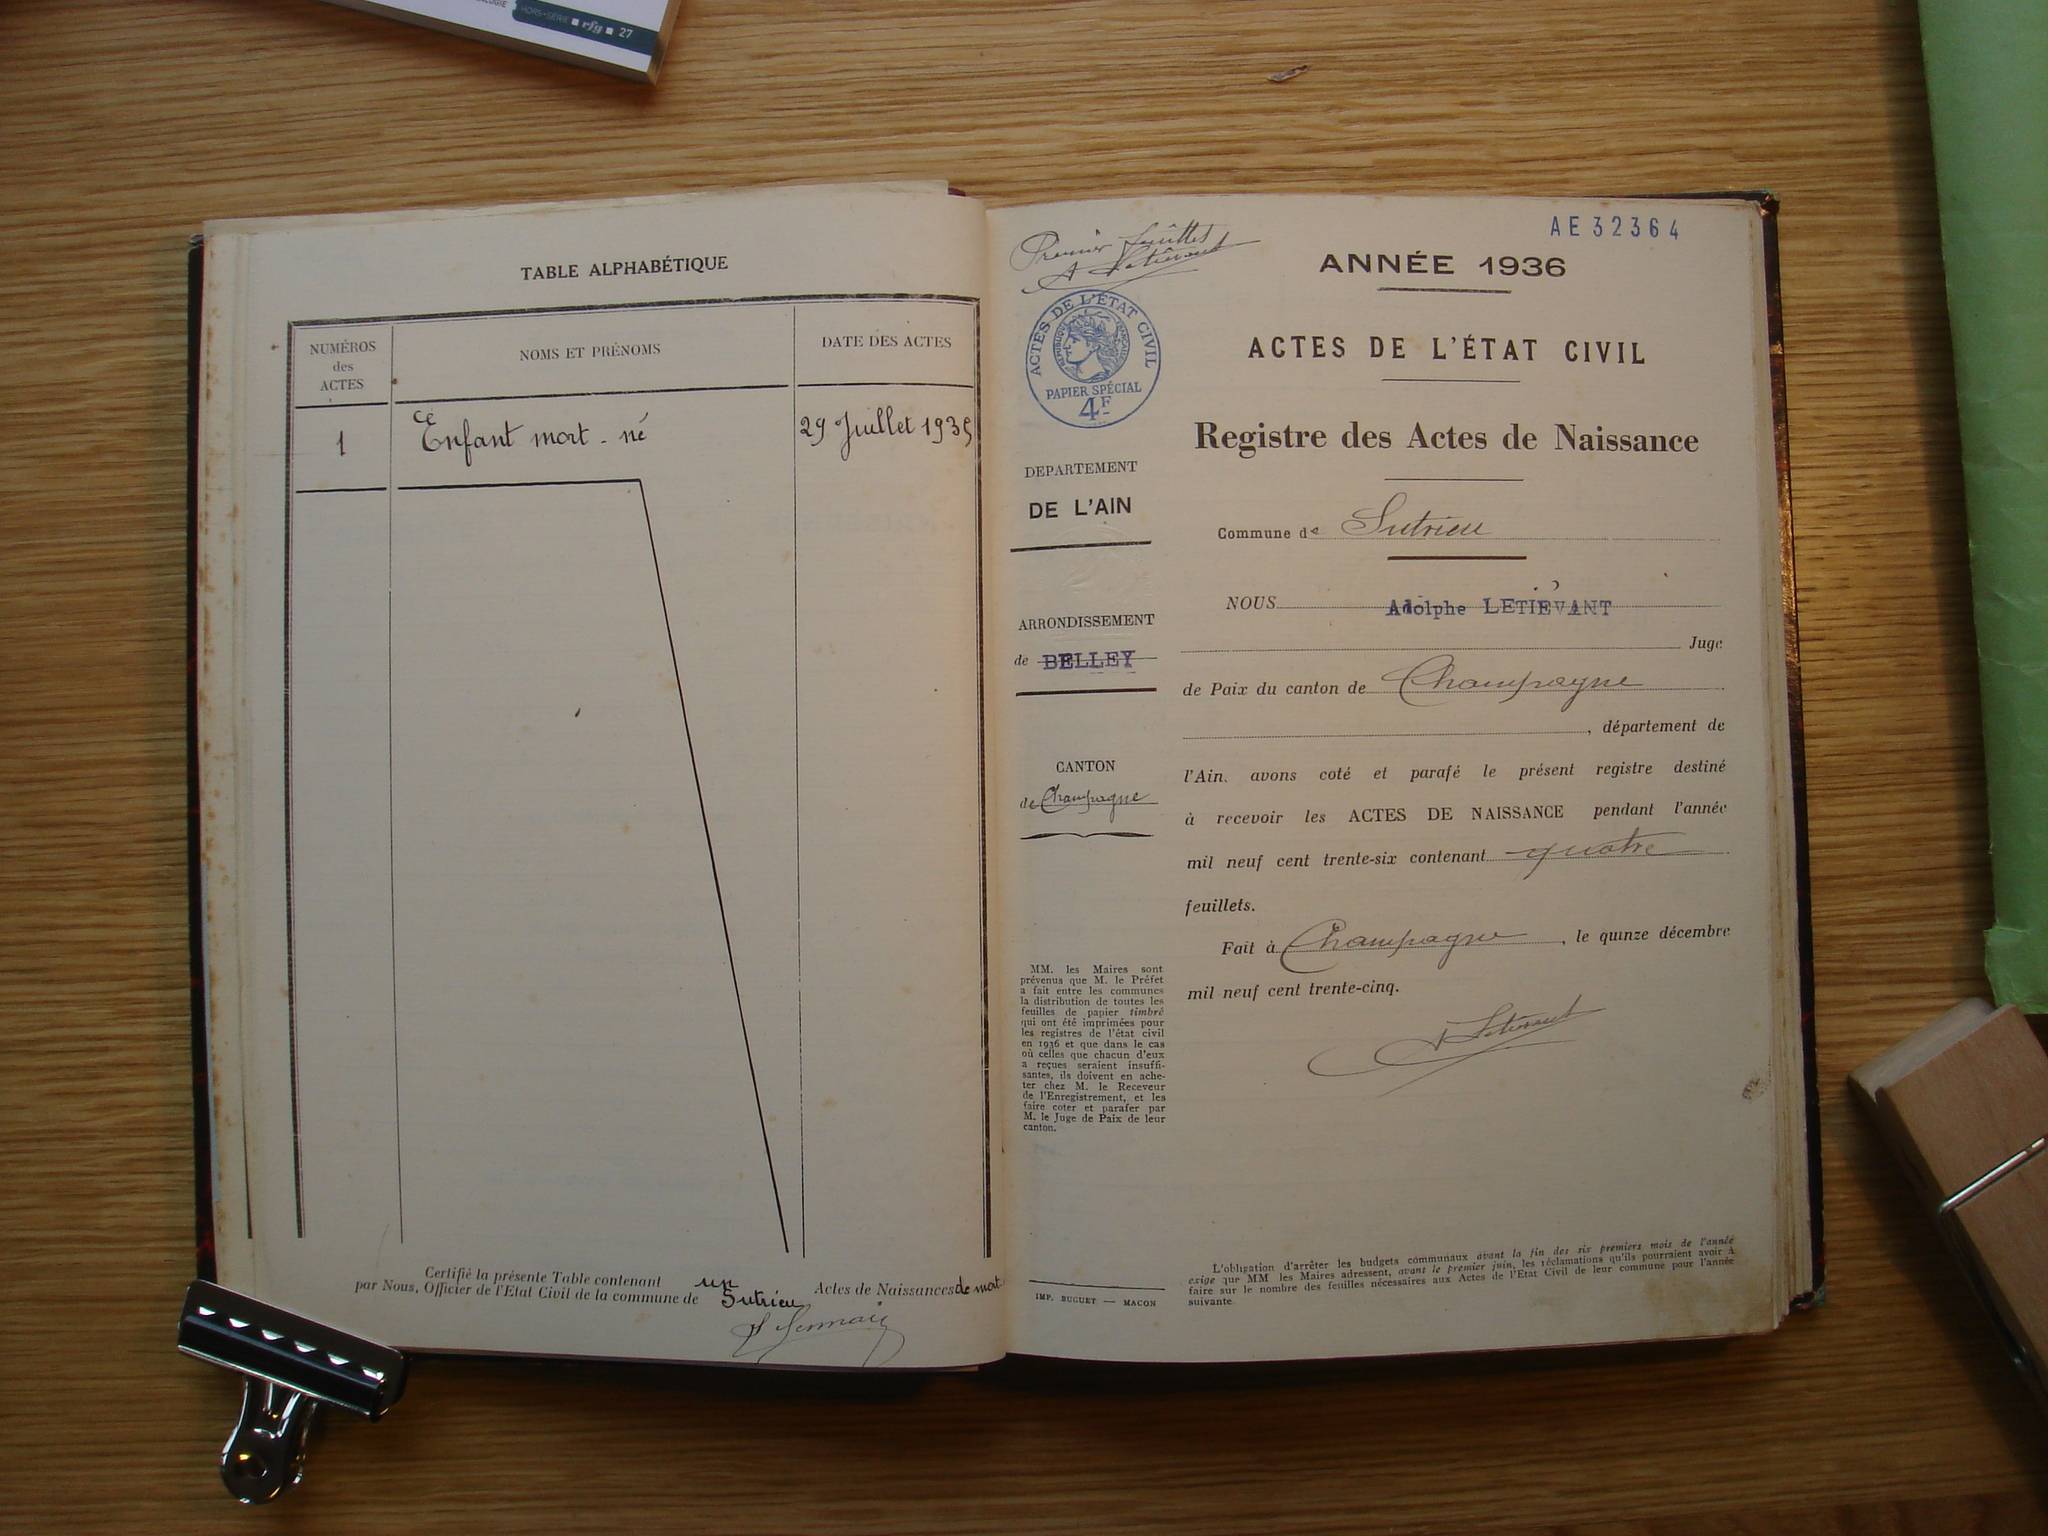 HORS-SÉRIE rfg 27
TABLE ALPHABÉTIQUE
NUMÉROS
des
ACTES
NOMS ET PRÉNOMS
DATE DES ACTES
1
Enfant mort-né
29 Juillet 1935
Certifié la présente Table contenant un Actes de Naissances de mort
par Nous, Officier de l'Etat Civil de la commune de Sutrieu
AE 32364
Premier
A Letiévant
ACTES DE L'ÉTAT CIVIL
RÉPUBLIQUE FRANÇAISE
PAPIER SPÉCIAL
4F
DEPARTEMENT
DE L'AIN
ARRONDISSEMENT
de BELLEY
CANTON
de Champagne
MM. les Maires sont
prévenus que M. le Préfet
a fait entre les communes
la distribution de toutes les
feuilles de papier timbré
qui ont été imprimées pour
les registres de l'état civil
en 1936 et que dans le cas
où celles que chacun d'eux
a reçues seraient insuffi-
santes, ils doivent en ache-
ter chez M. le Receveur
de l'Enregistrement, et les
faire coter et parafer par
M. le Juge de Paix de leur
canton.
IMP. BUGUET — MACON
ANNÉE 1936
ACTES DE L'ÉTAT CIVIL
Registre des Actes de Naissance
Commune de Sutrieu
NOUS Adolphe LETIÉVANT
Juge
de Paix du canton de Champagne
, département de
l'Ain, avons coté et parafé le présent registre destiné
à recevoir les ACTES DE NAISSANCE pendant l'année
mil neuf cent trente-six contenant quatre
feuillets.
Fait à Champagne, le quinze décembre
mil neuf cent trente-cinq.
A Letiévant
L'obligation d'arrêter les budgets communaux avant la fin des six premiers mois de l'année
exige que MM les Maires adressent, avant le premier juin, les réclamations qu'ils pourraient avoir à
faire sur le nombre des feuilles nécessaires aux Actes de l'Etat Civil de leur commune pour l'année
suivante